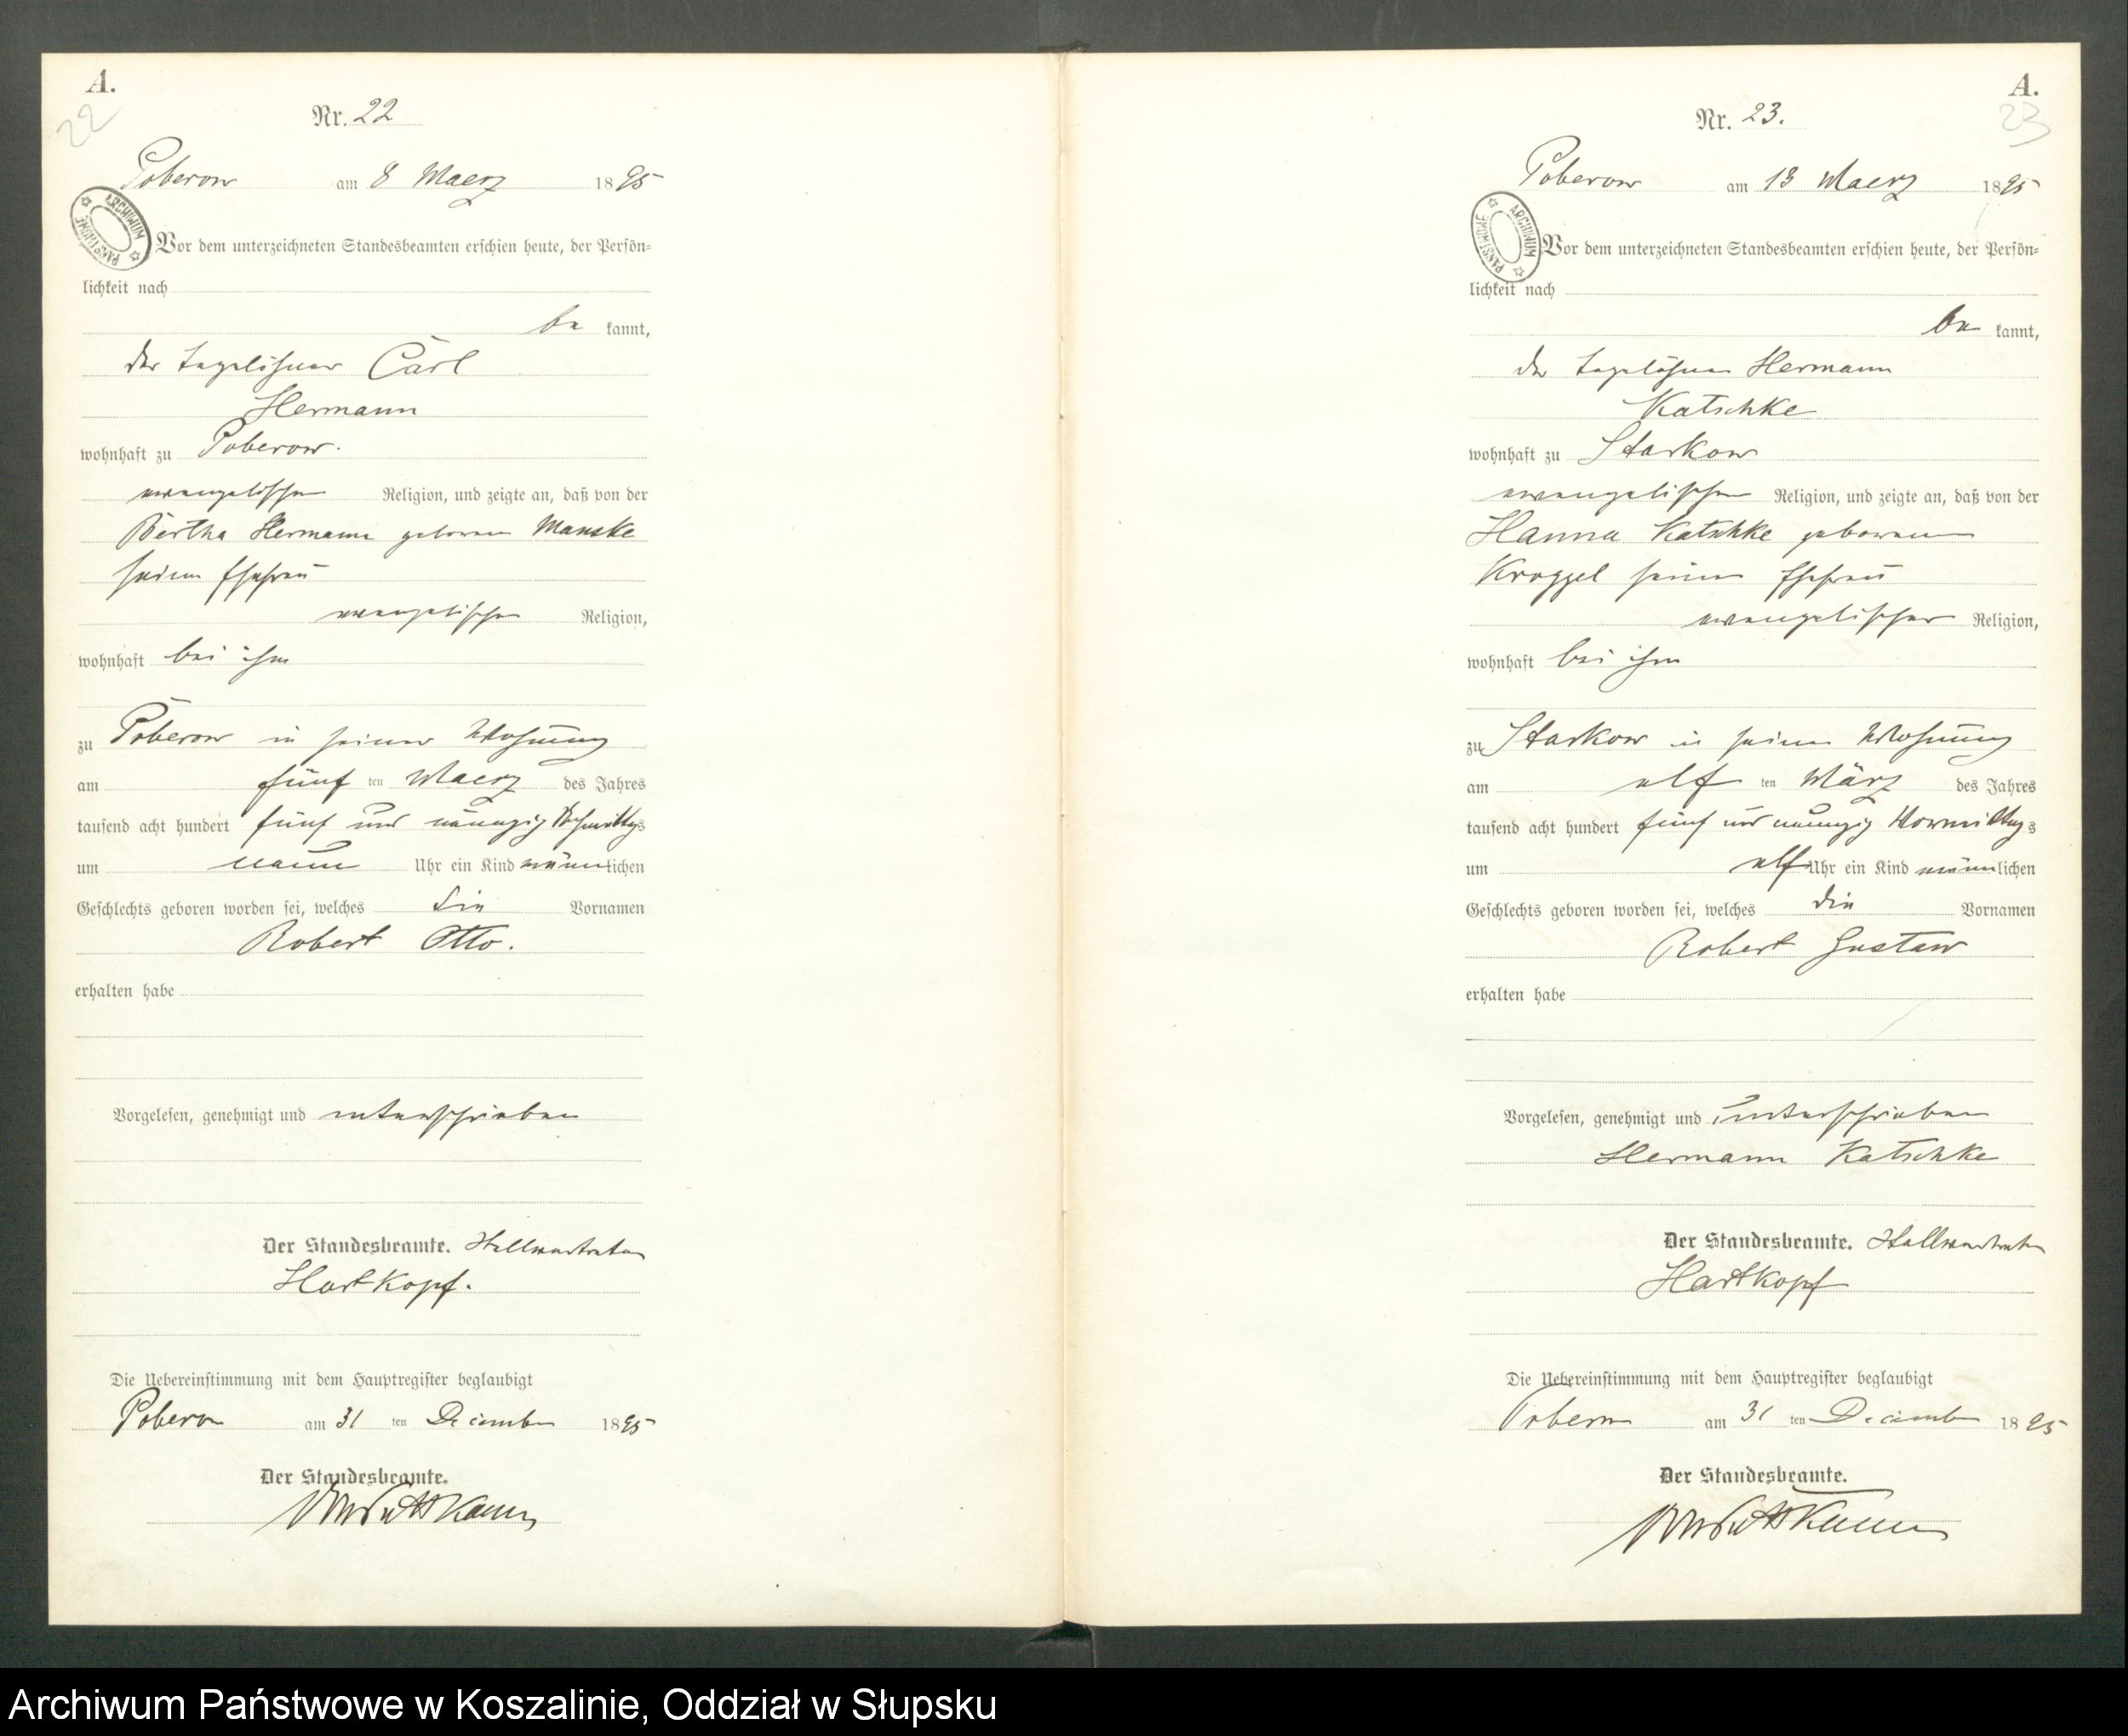 A.
22
Nr. 22
Poberow am 8 Maerz 1895
ARCHIWUM PAŃSTWOWE
Vor dem unterzeichneten Standesbeamten erschien heute, der Persön=
lichkeit nach
be kannt,
der Tagelöhner Carl
Hermann
wohnhaft zu Poberow.
evangelischer Religion, und zeigte an, daß von der
Bertha Hermann geborenen Manske
seiner Ehefrau
evangelischer Religion,
wohnhaft bei ihm
zu Poberow in seiner Wohnung
am fünf ten Maerz des Jahres
tausend acht hundert fünf und neunzig Nachmittags
um neun Uhr ein Kind männlichen
Geschlechts geboren worden sei, welches die Vornamen
Robert Otto.
erhalten habe
Vorgelesen, genehmigt und unterschrieben
Der Standesbeamte.
Hartkopf.
Die Uebereinstimmung mit dem Hauptregister beglaubigt
Poberow am 31 ten December 1895
Der Standesbeamte.
A.
23
Nr. 23.
Poberow am 13 Maerz 1895
ARCHIWUM PAŃSTWOWE
Vor dem unterzeichneten Standesbeamten erschien heute, der Persön=
lichkeit nach
be kannt,
der Tagelöhner Hermann
Katschke
wohnhaft zu Starkow
evangelischer Religion, und zeigte an, daß von der
Hanna Katschke geborenen
Kroggel seiner Ehefrau
evangelischer Religion,
wohnhaft bei ihm
zu Starkow in seiner Wohnung
am elf ten März des Jahres
tausend acht hundert fünf und neunzig Vormittags
um elf Uhr ein Kind männlichen
Geschlechts geboren worden sei, welches die Vornamen
Robert Gustav
erhalten habe
Vorgelesen, genehmigt und unterschrieben
Hermann Katschke
Der Standesbeamte.
Hartkopf
Die Uebereinstimmung mit dem Hauptregister beglaubigt
Poberow am 31 ten December 1895
Der Standesbeamte.
Archiwum Państwowe w Koszalinie, Oddział w Słupsku